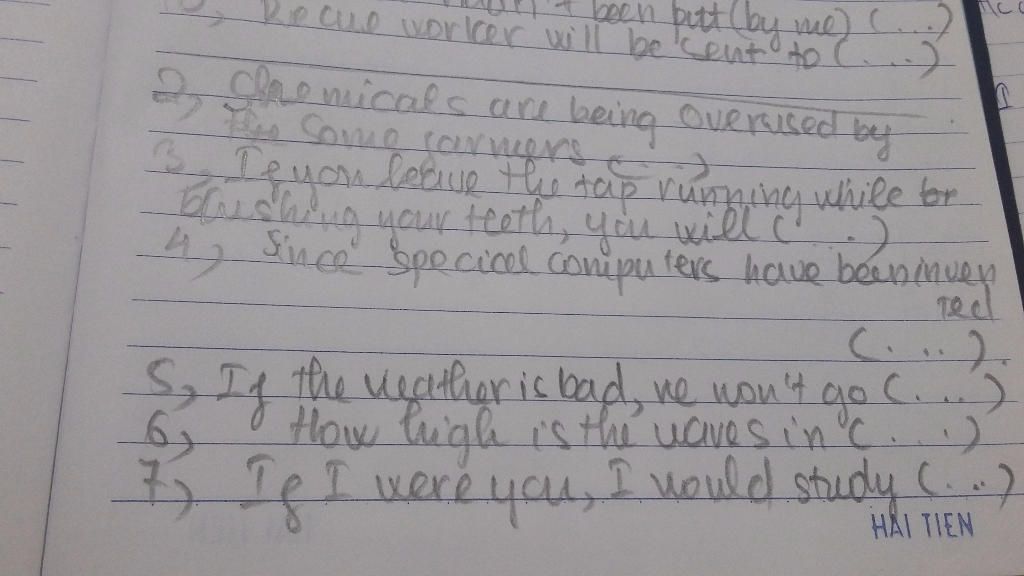 been putt (by me) (...)
worker will be sent to (...)
2, Chemicals are being overused by
the some farmers (...)
3, If you leave the tap running while br
brushing your teeth, you will (...)
4, Since special computers have been inven
ted
(...).
5, If the weather is bad, we won't go (...)
6, How high is the waves in (...)
7, If I were you, I would study (...)
HẢI TIẾN